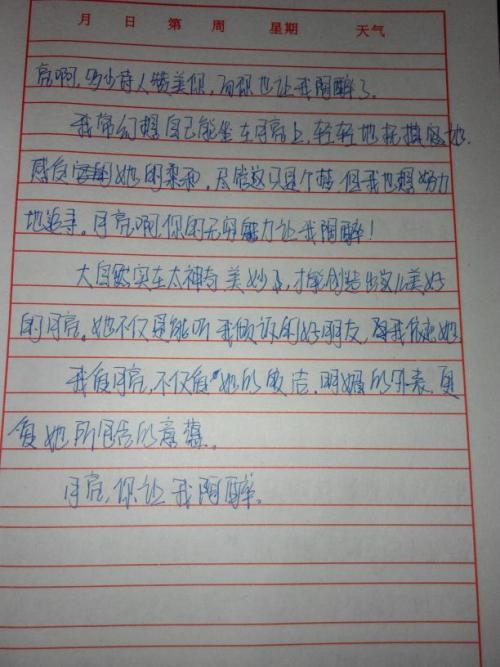 月 日 第 周 星期 天气
亮啊,多少诗人赞美你,而你也让我陶醉了。
我常幻想自己能坐在月亮上,轻轻地抚摸着她,
感受她的柔和。尽管这只是个梦,但我也想努力
地追寻。月亮啊,你的无穷魅力让我陶醉!
大自然实在太神奇美妙了,才能创造出这么美好
的月亮。她不仅是能听我倾诉的好朋友,
我爱月亮,不仅爱她的皎洁、明媚的外表,更
爱她所包含的意蕴。
月亮,你让我陶醉。